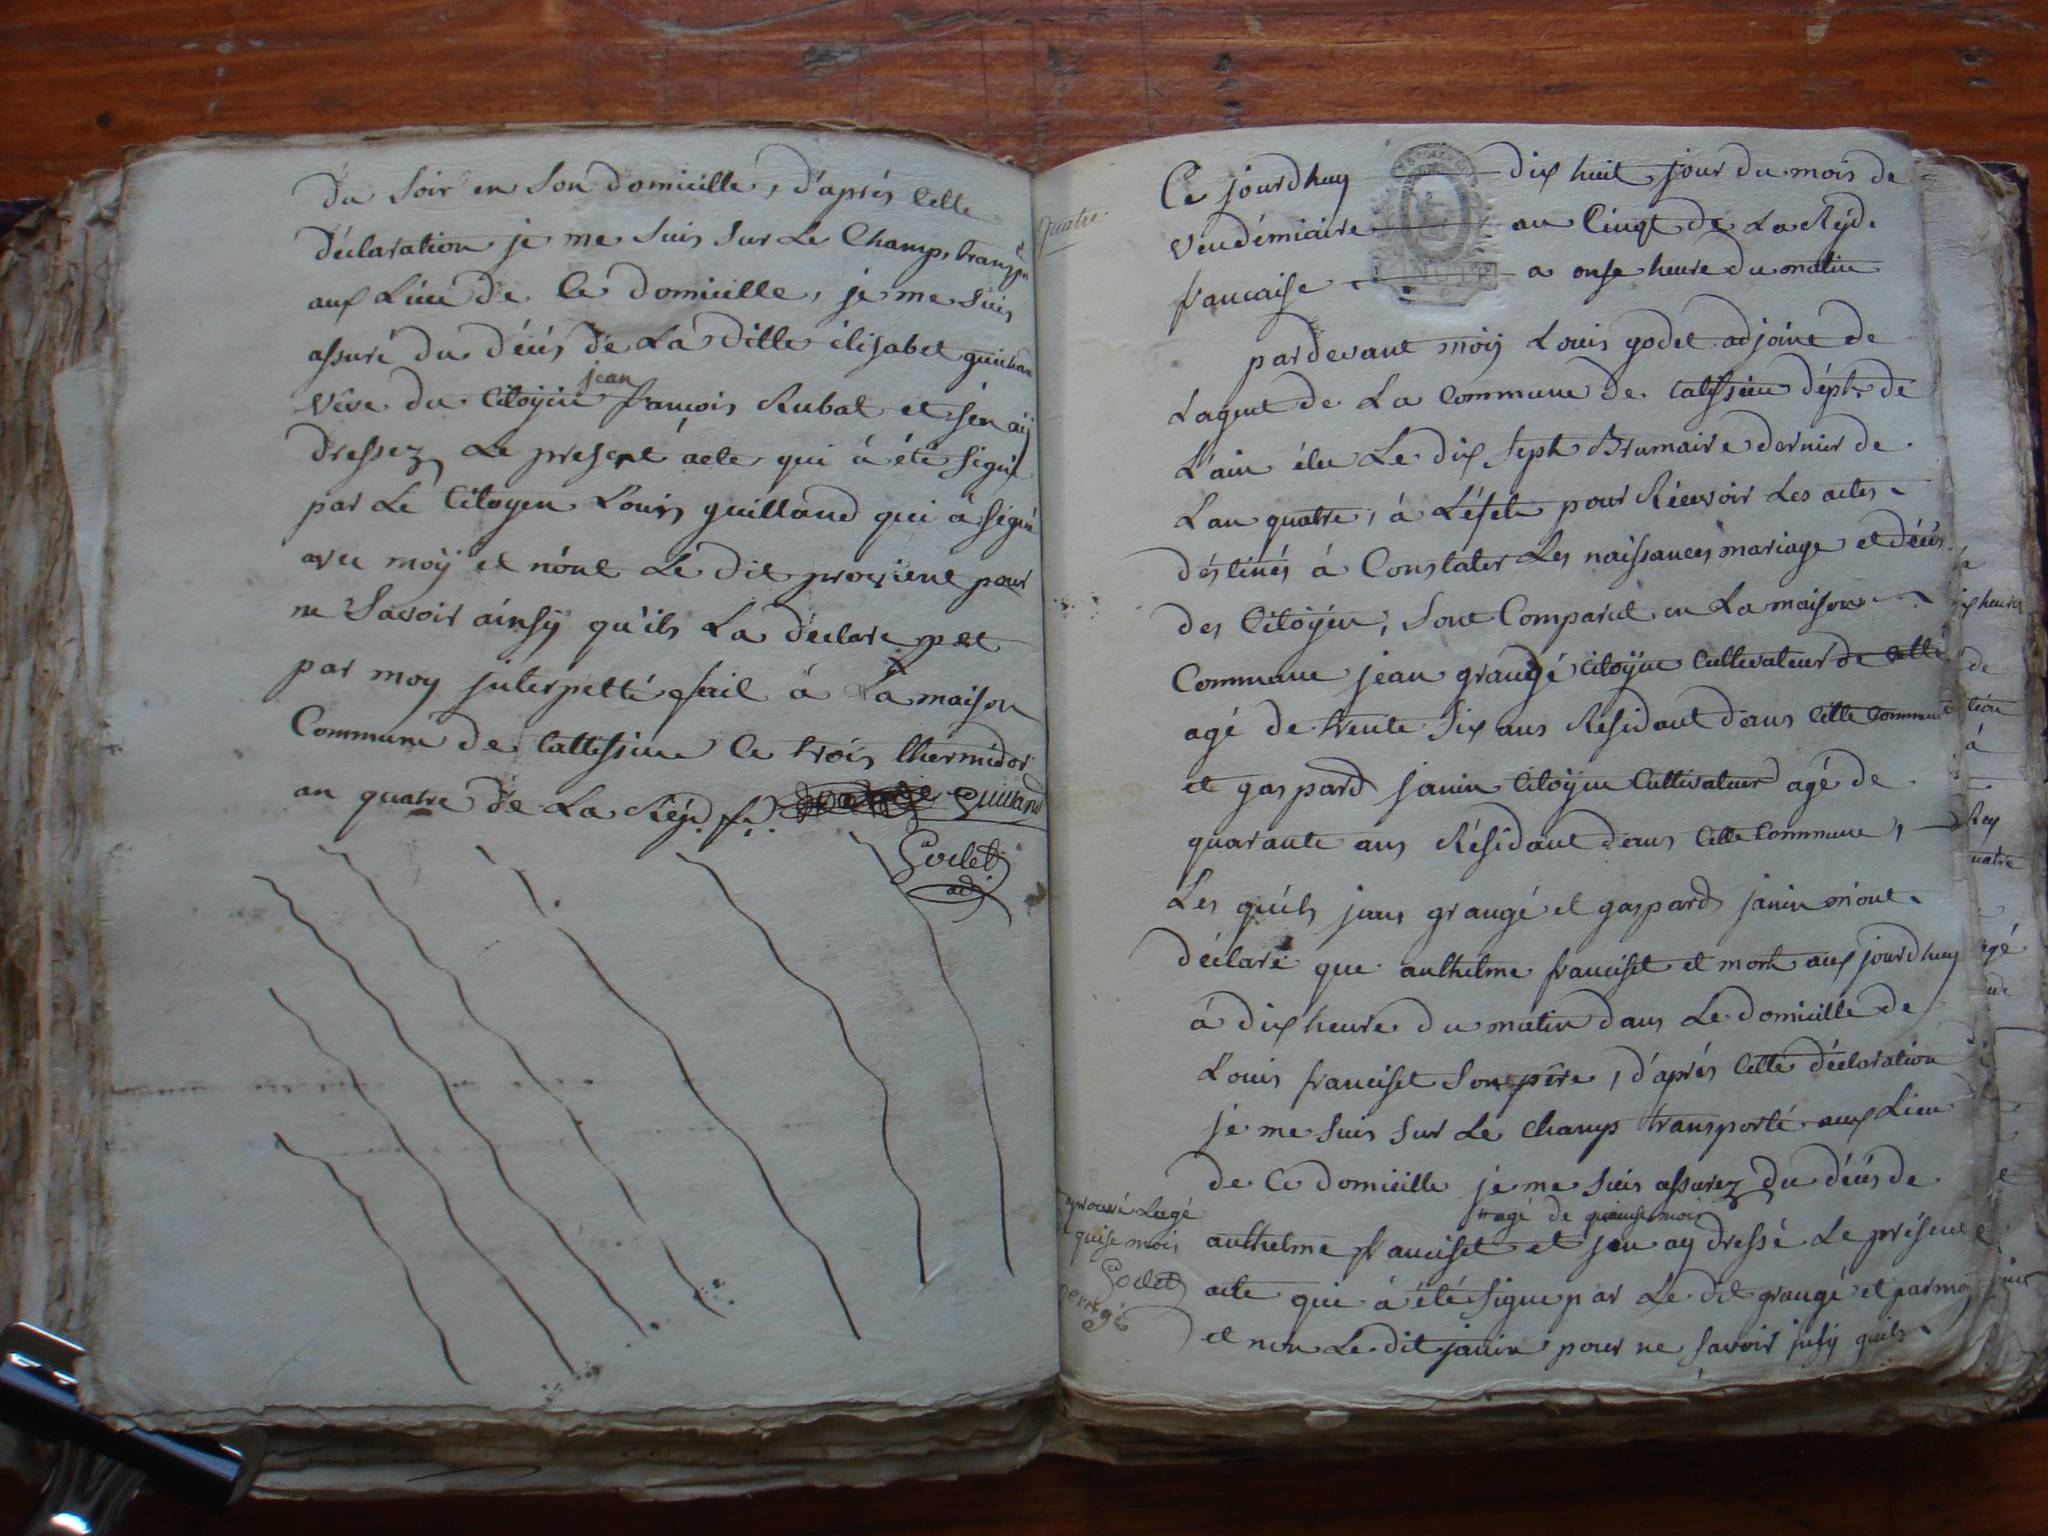 du soir en son domicille, d'aprés cette
déclaration je me suis sur le champ, transpté
aux Lieu de Ce domicille, je me suis
assuré du décés de La ditte élisabet guichar
vêve du Citoÿen jean françois Rubat et s'en aÿ
dressez Le present acte qui à été signé
par Le Citoyen Louis guilland qui à signé
avec moÿ et nont Le dit pour
ne Savoir ainsÿ qu'ils La déclare et
par moy interpetté fait à La maison
Commune de Cattissieu Ce trois thermidor
an quatre de La Rép. fr. Guilland
Godet
adj
quatre.
Ce jourdhuy dix huit jour du mois de
Vendémiaire an Cinqt de La Rép.
francaise a onse heure du matin
pardevant moÿ Louis godet adjoint de
Lagent de La Commune de Catissieu dépt. de
L'ain élu Le dix sept Brumaire dernier de
Lan quatre, à L'éfet pour Récevoir Les actes
déstinés à Constater Les naissances mariage et décés
des Citoÿen, sont Comparut en La maison
Commune jean grangé citoÿen Cultivateur de cette
agé de trente six ans Résidant dans Cette Commune
et gaspard janin Citoÿen Cultivateur agé de
quarante ans Résidant dans Cette Commune,
Les quels jean grangé et gaspard janin m'ont
déclaré que anthelme franciset et mort aux jourdhuy
à dix heure du matin dans Le domicille de
Louis franciset Son pêre, d'aprés Cette déclaration
je me suis sur Le champ transporté aux Lieu
de Ce domicille je me suis assurez du décés de
agé de quinse mois
anthelme franciset et jen ay dressé Le présent
acte qui à été signe par Le dit grangé et par moy
et non Le dit janin pour ne savoir quils
aprouvé Lagé
de quise mois
Godet